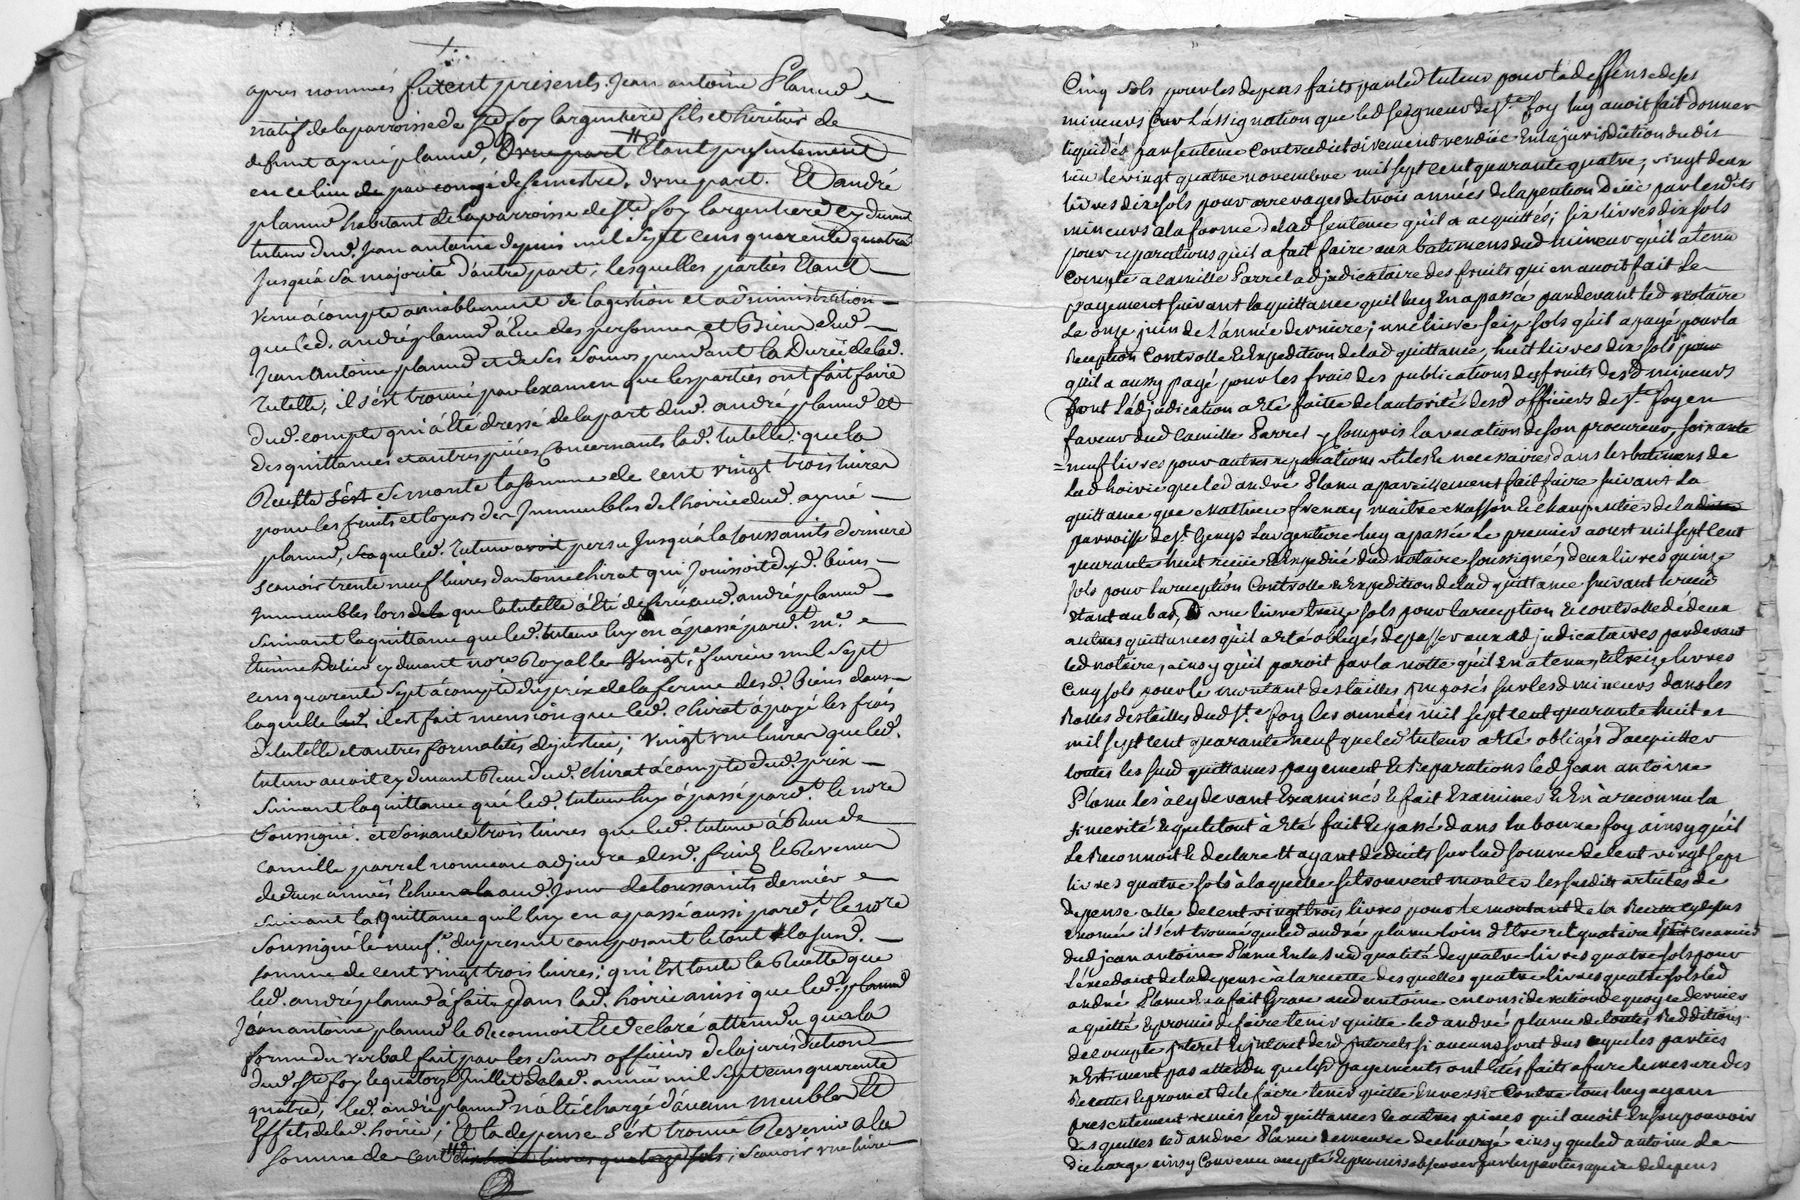 apres nommés furent presents. Jean antoine Planud
natif de la parroisse de Ste foy largentiere fils et héritier de
deffunt aymé planud, d'une part Etant presentement
en ce lieu de par congé de semestre, d'une part. Et andré
planud habitant de la parroisse de Ste. foy largentiere cy devant
tuteur dud. Jean antoine depuis mil sept cens quarente quatre
Jusqu'à sa majorité d'autre part; lesquelles parties Etant
venu à compte amiablement de la gestion et administration
que led. andré planud à Eue des personnes et Biens dud.
Jean Antoine planud et de ses pendant la Durée de lad.
Tutelle, il s'est trouvé par lexamen que les parties ont fait faire
dud. compte qui à Eté dressé de la part dud. andré planud et
des quittances et autres pièces concernants lad. tutelle; que la
Recette s'est se monte la somme de cent vingt trois livres
pour les fruits et loyers des Immeubles de l'hoirie dud. aymé
planud, que led. tuteur avoit perçu Jusqu'à la toussaints derniere
scavoir trente neuf livres d'antoine chirat qui Jouissoit desd. biens
Immeubles lors de la que la tutelle à Eté deferée aud. andré planud
suivant la quittance que led. tuteur luy en à passé pard.t me.
Etienne cy devant nore. Royal le vingt. fevrier mil sept
cens quarente sept à compte du prix de la ferme desd. biens dans
laquelle led. il est fait mension que led. chirat à payé les frais
de tutelle et autres formalités de justice; vingt une livres que led.
tuteur auroit cy devant Reçu dud. chirat à compte dud. prix
suivant la quittance que led. tuteur luy à passé pard.t le nore
soussigné. et soixante trois livres que led. tuteur à Reçu de
camille parrel nouveau adjudre. desd. fruits le Revenu
de deux années Echue a la aud. Jour de toussaints dernier
suivant la quittance qu'il luy en a passé aussi pard.t le nore
soussigné le neuf.e du present composant le tout la susd.
somme de cent vingt trois livres; qui Est toute la Recette que
led. andré planud à faite dans lad. hoirie ainsi que led. planud
Jean antoine planud le Reconnoit et declaré attendu que la
forme du verbal fait par les sieurs officiers de la jurisdiction
dud. Ste foy le quatorze Juillet de lad. année mil sept cens quarente
quatre, led. andré planud n'à Eté chargé d'aucun meubles Et
Effets de lad. hoirie; Et la depense s'est trouvé Revenir a la
somme de cent livres quatorze sols; scavoir une livre
Cinq sols pour les depens faits par led tuteur pour la deffense desd
mineurs sur L'assignation que led seigneur de Ste foy luy avoit fait donner
liquidés par sentence contradictoirement rendüe En la jurisdiction dudit
lieu le vingt quatre novembre mil sept cent quarante quatre, vingt deux
livres dix sols pour arrerages de trois années de la pention deüe par lesdits
mineurs a la forme de lad sentence qu'il a acquittés; six livres dix sols
pour reparations qu'il a fait faire aux batimens dud mineur qu'il a tenu
compte a Camille Parrel adjudicataire des fruits qui en avoit fait Le
payement suivant la quittance qu'il luy En a passée pardevant led notaire
Le onze juin de L'année derniere; une livre seize sols qu'il a payé pour la
Reception Controlle & Expedition de lad quittance, huit livres dix sols pour
qu'il a aussy payé pour les frais des publications des fruits desd mineurs
dont L'adjudication a Eté faitte de l'autorité desd officiers de Ste foy en
faveur dud Camille Parrel y compris la vacation de son procureur, soixante
neuf livres pour autres reparations utiles & necessaires dans les batimens de
Lad hoirie que led andré Planu a pareillement fait faire suivant La
quittance que Mathieu frenay maitre Masson & charpentier de la ditte
parroisse de St Genys Largentiere luy a passée Le premier aoust mil sept cent
quarante huit reçüe & Expedié dud notaire soussigné, deux livres quinze
sols pour la reception Controlle & Expedition de lad quittance suivant le reçû
Etant au bas, une livre treize sols pour la reception & controlle de deux
autres quittances qu'il a Eté obligé de passer aux adjudicataires pardevant
led notaire, ainsy qu'il paroit par la notte qu'il En a tenu, & treize livres
Cinq sols pour le montant des tailles imposés sur lesd mineurs dans les
Rolles des tailles dud Ste foy les années mil sept cent quarante huit et
mil sept cent quarante neuf que led tuteur a Eté obligé d'acquitter
toutes les susd quittances payement & Reparations led jean antoine
Planu les a cy devant Examinés & fait Examiner & En à reconnu la
sincerité & que le tout à Eté fait & passé dans la bonne foy ainsy qu'il
Le Reconnoit & declare Et ayant deduits sur lad somme de Cent vingt sept
livres quatre sols à laquelle se trouvent monter les susdits articles de
depense celle de Cent vingt trois livres pour le montant de la Recette cy dessus
Enoncée il s'est trouvé que led andré planu loin d'Etre reliquataire
dud jean antoine Planu En lasusd qualité de quatre livres quatre sols pour
L'excedant de la depense à la recette des quelles quatre livres quatre sols led
andré Planu En a fait Grace aud antoine en consideration de quoy ce dernier
a quitté & promis de faire tenir quitte led andré planu de toutes Redditions
de compte interet & desd Interets si aucuns sont dus aqueles parties
n'estiment pas attendu que lesd payements ont Etés faits a fur & mesure des
Recettes & promet de le faire tenir quitte Envers & Contre tous luy ayant
presentement remis lesd quittances & autres pieces qu'il avoit En son pouvoir
Des quelles led andré Planu demeure dechargé ainsy que led antoine Le
decharge ainsy Convenu accepté & promis observer par les parties a peine de depens